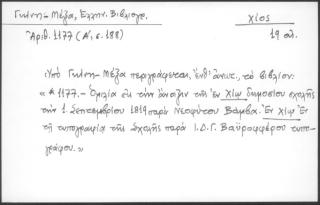 Γκίνη - Μέξα, Ἑλλην. Βιβλιογρ.
Χίος
Ἀριθ. 1177 (Α', σ. 188)
19 αἰ.
Ὑπὸ Γκίνη - Μέξα περιγράφεται, ἔνθ' ἄνωτ., τὸ βιβλίον:
«*1177. - Ὁμιλία εἰς τὴν ἄνοιξιν τῆς ἐν Χίῳ δημοσίου σχολῆς
τὴν 1. Σεπτεμβρίου 1819 παρὰ Νεοφύτου Βάμβα. Ἐν Χίῳ Ἐν
τῇ τυπογραφίᾳ τῆς Σχολῆς παρὰ Ἰ.Δ.Γ. Βαϋροφφέρου τυπο-
γράφου.»